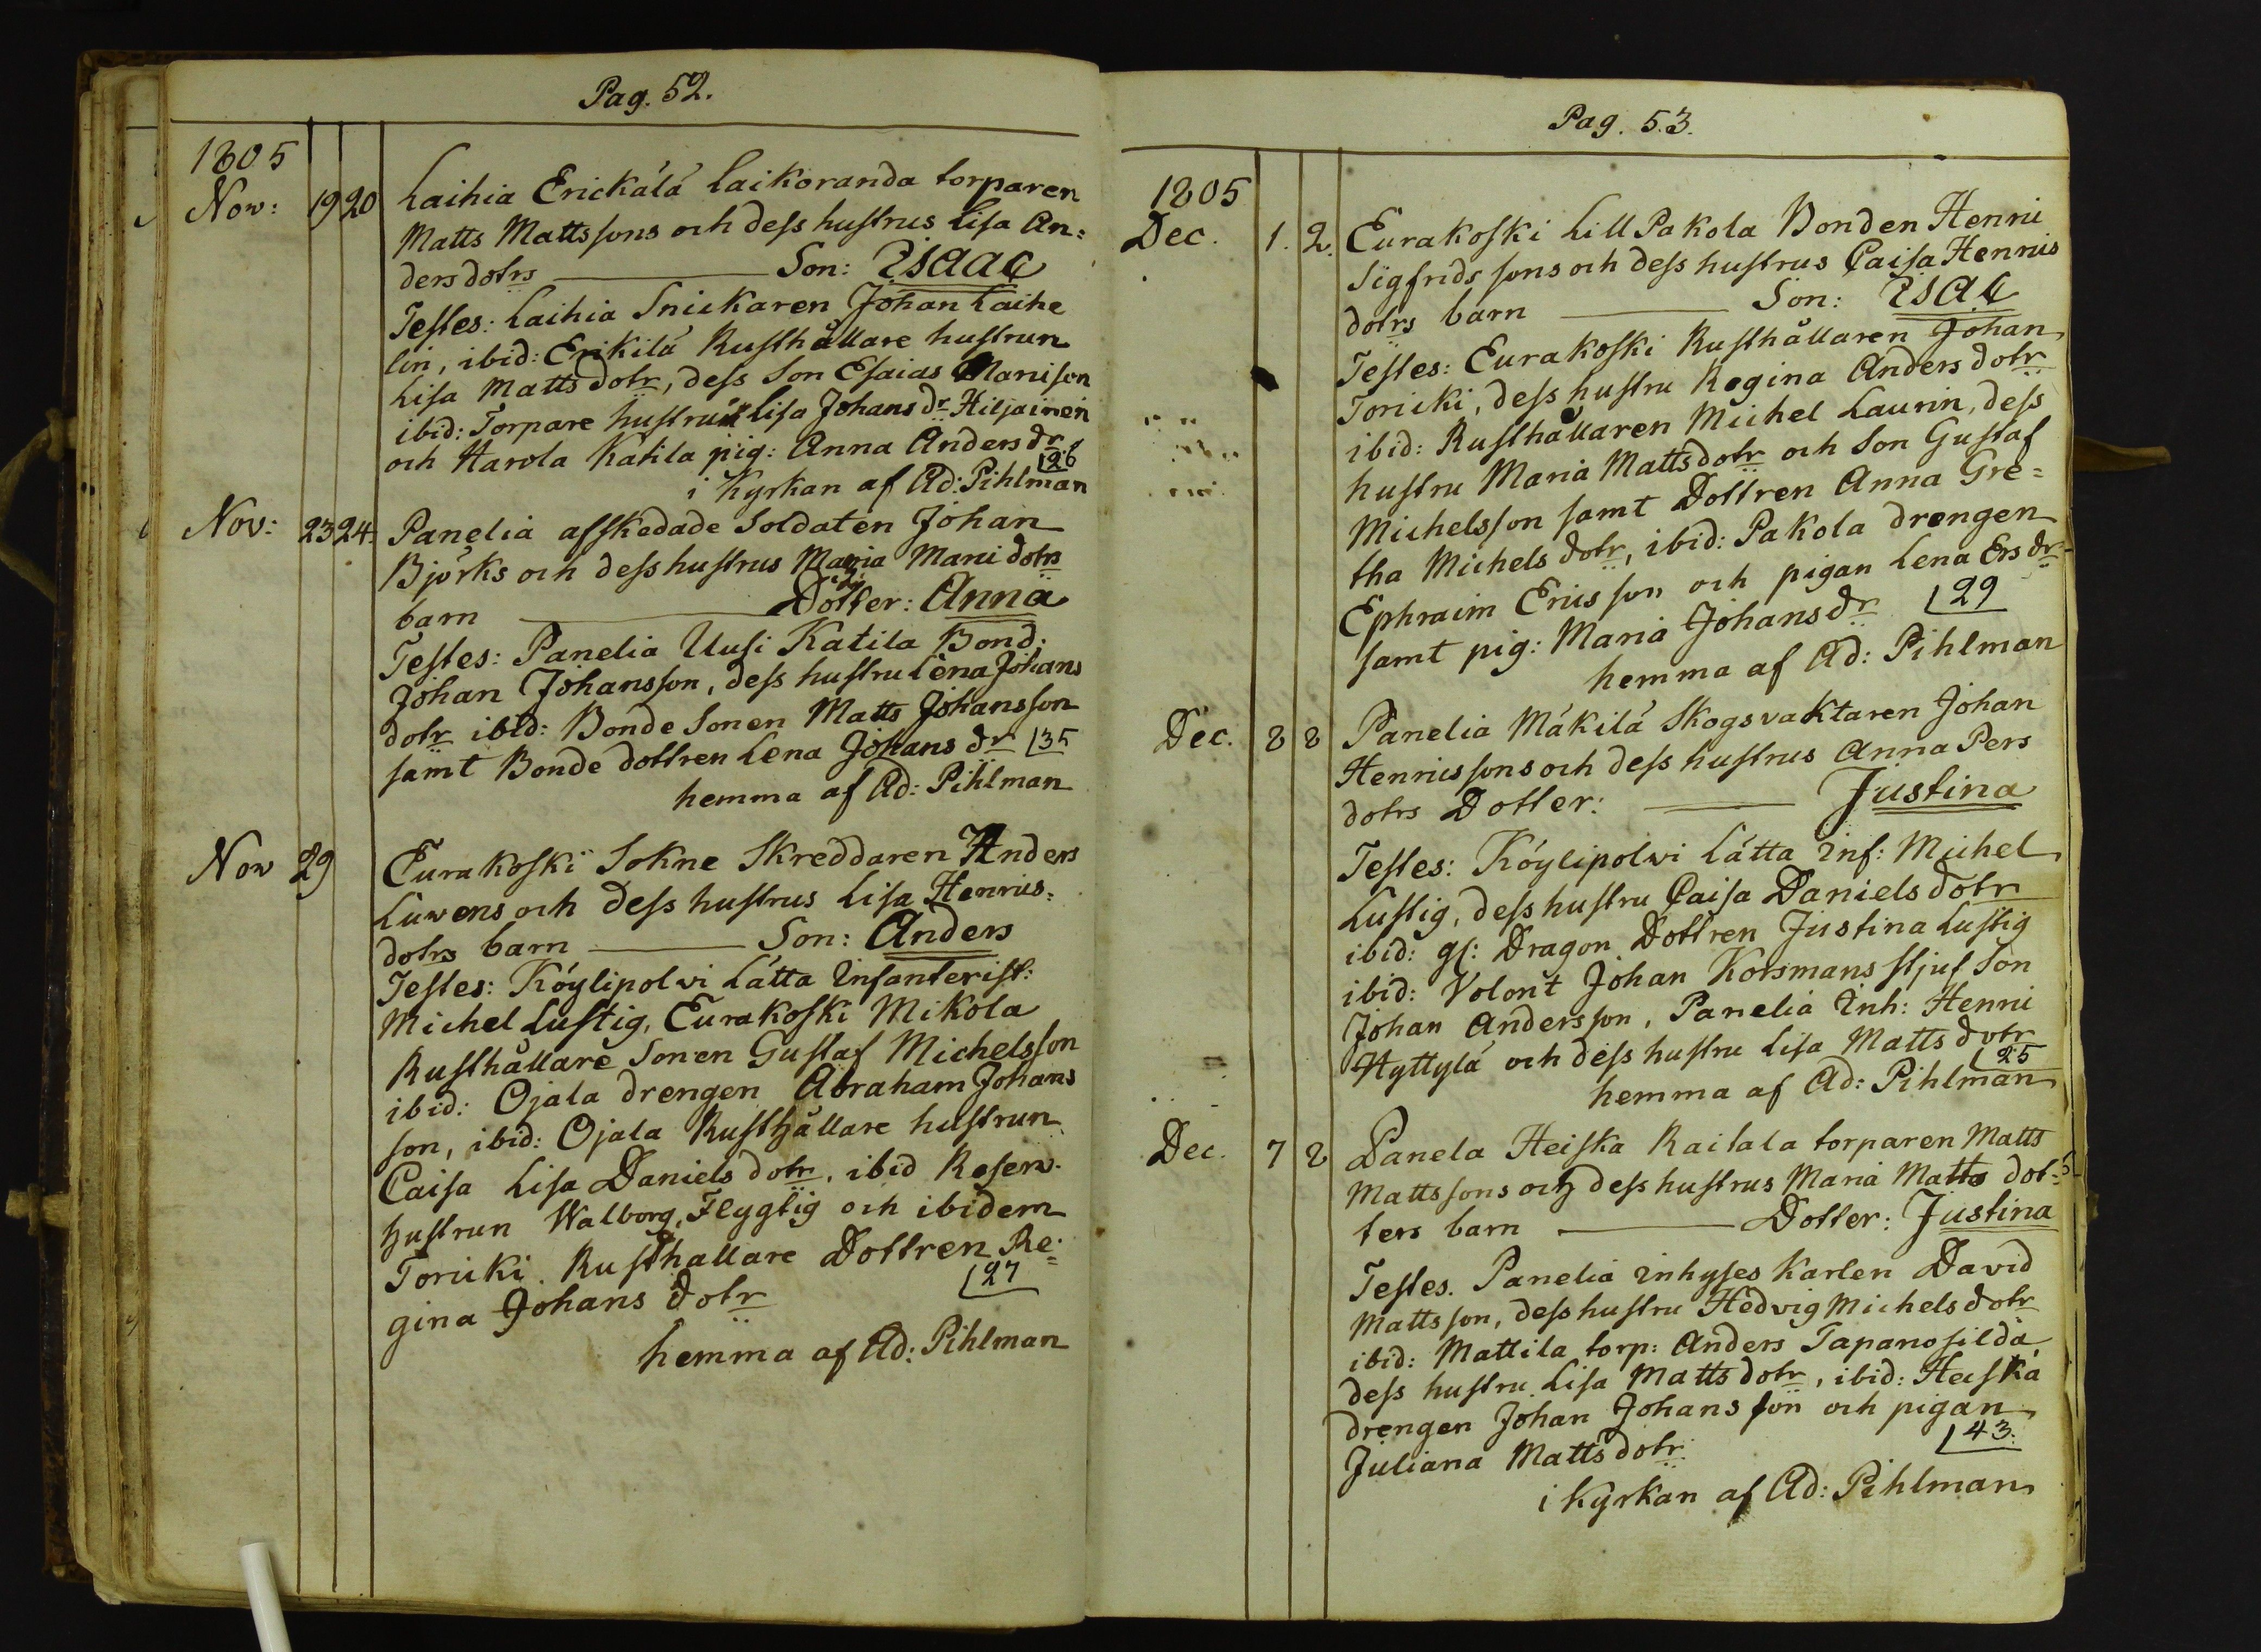 Pag. 52.
1805
Nov: 19 20 Laihia Erickälä Laikoranda torparen
Matts Mattssons och dess hustrus Lisa An=
dersdotrs Son: Isaac
Testes: Laihia Snickaren Johan Laihe
lin, ibid: Erikilä Rusthållare hustrun
Lisa Mattsdotr, dess Son Esaias Manison
ibid: Torpare hustru Lisa Johansdr Hiljainen
och Harola Katila pig: Anna Andersdr
26
i Kyrkan af Ad: Pihlman
Nov: 23 24. Panelia afskedade Soldaten Johan
Björks och dess hustrus Maria Manidotrs
barn Dotter: Anna
Testes: Panelia Uusi Katila Bond:
Johan Johansson, dess hustru Lena Johans
dotr ibid: Bonde Sonen Matts Johansson
samt Bonde dottren Lena Johansdr 35
hemma af Ad: Pihlman
Nov 29 Eurakoski Sokne Skreddaren Anders
Luvens och dess hustrus Lisa Henrics=
dotrs barn Son: Anders
Testes: Köylipolvi Lätta Infanterist:
Michel Lustig, Eurakoski Mikola
Rusthållare Sonen Gustaf Michelsson
ibid: Ojala drengen Abraham Johans
son, ibid: Ojala Rusthållare hustrun
Caisa Lisa Danielsdotr, ibid Reserv.
hustrun Walborg Flygtig och ibidem
Toricki Rusthallare Dottren Re=
gina Johansdotr 27
hemma af Ad: Pihlman
Pag. 53.
1805
Dec. 1. 2. Eurakoski Lill Pakola Bonden Henric
Sigfridssons och dess hustrus Caisa Henrics
dotrs barn Son: Isac
Testes: Eurakoski Rusthållaren Johan
Toricki, dess hustru Regina Andersdotr
ibid: Rusthållaren Michel Laurin, dess
hustru Maria Mattsdotr och Son Gustaf
Michelsson samt Dottren Anna Gre=
tha Michelsdotr, ibid: Pakola drengen
Ephraim Ericsson och pigan Lena Ersdr
samt pig: Maria Johansdr 29
hemma af Ad: Pihlman
Dec. 8 8 Panelia Mäkilä Skogsvaktaren Johan
Henricssons och dess hustrus Anna Pers
dotrs Dotter: Justina
Testes: Köylipolvi Lätta Inf: Michel
Lustig, dess hustru Caisa Danielsdotr
ibid: gl: Dragon Dottren Justina Lustig
ibid: Volont Johan Korsmans stjuf Son
Johan Andersson, Panelia Inh: Henric
Hyttylä och dess hustru Lisa Mattsdotr
25
hemma af Ad: Pihlman
Dec. 7 8 Panela Heiska Raitala torparen Matts
Mattssons och dess hustrus Maria Matts dot=
ters barn Dotter: Justina
Testes. Panelia Inhyses Karlen David
Mattsson, dess hustru Hedvig Michelsdotr
ibid: Mattila torp: Anders Tapanosilda
dess hustru Lisa Mattsdotr, ibid: Heiska
drengen Johan Johansson och pigan
Juliana Mattsdotr 43.
i Kyrkan af Ad: Pihlman